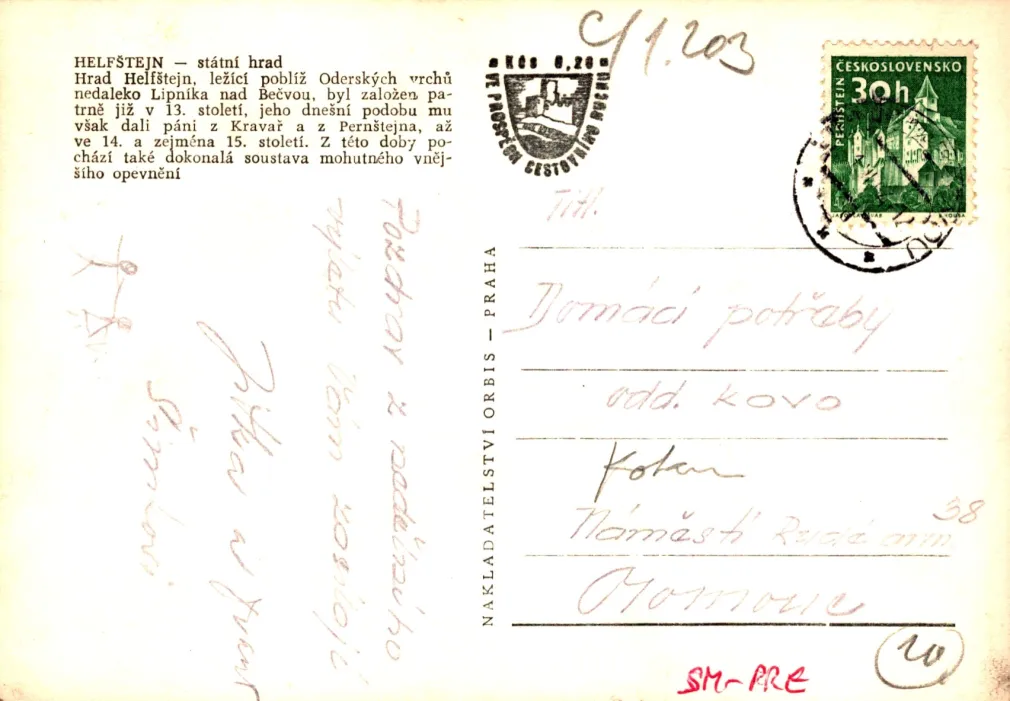 HELFŠTEJN — státní hrad
Hrad Helfštejn, ležící poblíž Oderských vrchů
nedaleko Lipníka nad Bečvou, byl založen pa-
trně již v 13. století, jeho dnešní podobu mu
však dali páni z Kravař a z Pernštejna, až
ve 14. a zejména 15. století. Z této doby po-
chází také dokonalá soustava mohutného vněj-
šího opevnění
Pozdrav z nedělního
výletu Vám zasílají
Jitka a
NAKLADATELSTVÍ ORBIS — PRAHA
Kčs 0,20
VE PROSPĚCH CESTOVNÍHO RUCHU
C/1.203
ČESKOSLOVENSKO
30h
PERNŠTEJN
Titl.
Domácí potřeby
odd. KOVO
Náměstí Rudé arm. 38
Olomouc
20
SM-PRE